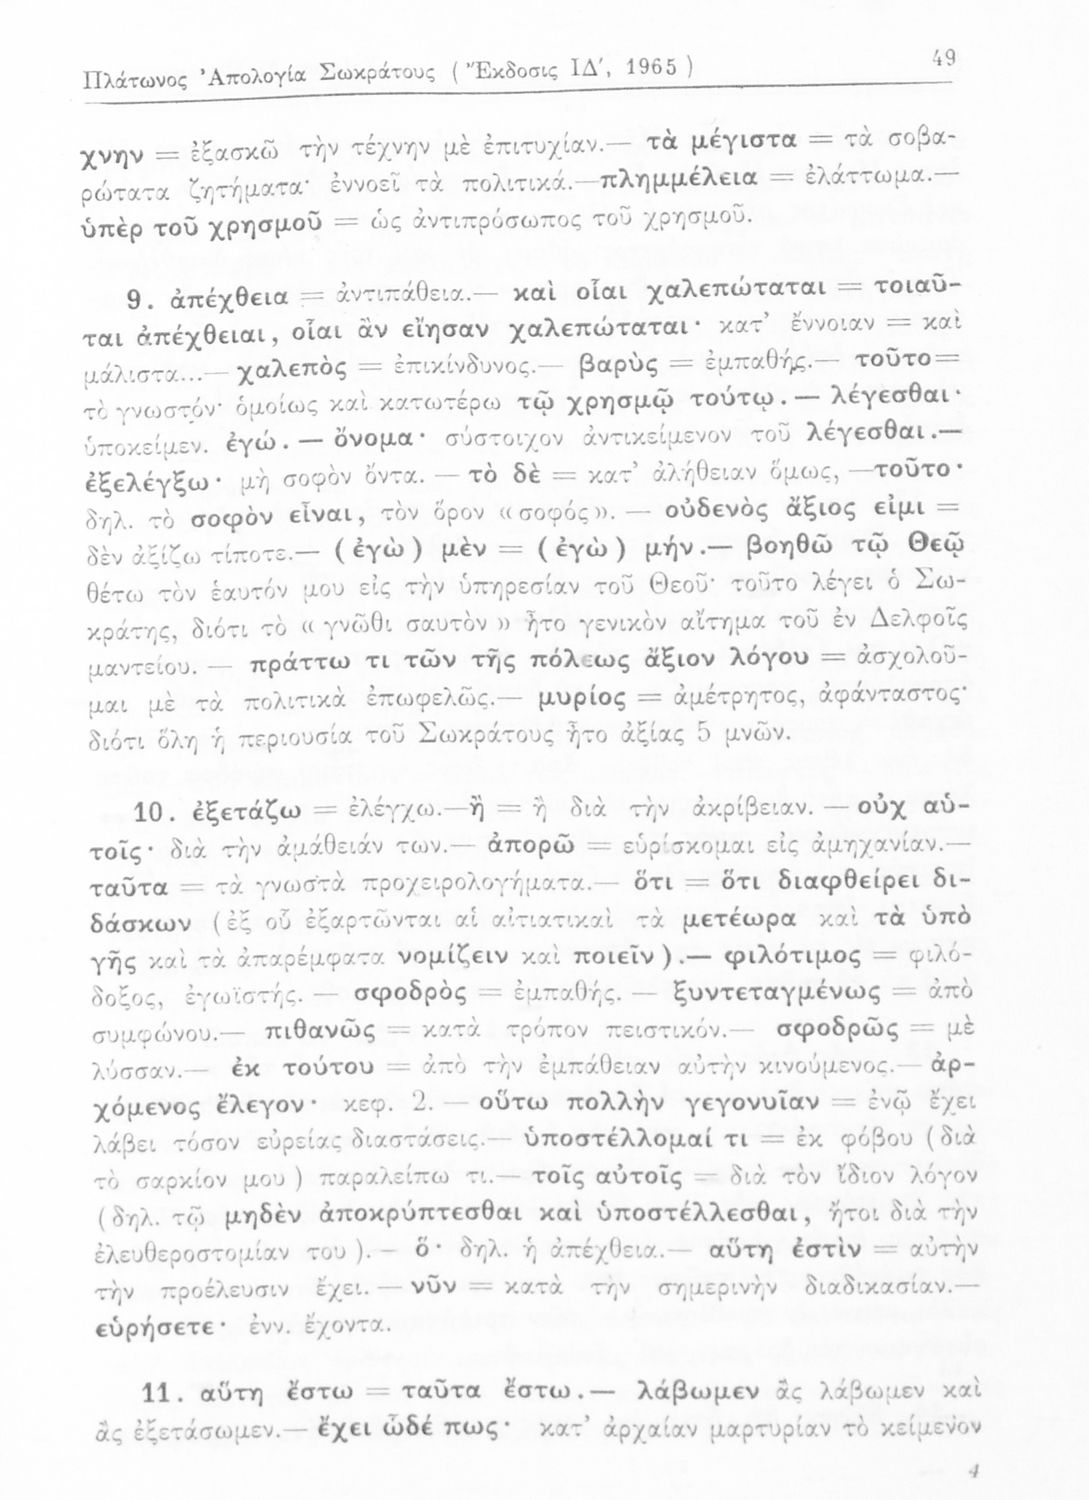 Πλάτωνος Ἀπολογία Σωκράτους ( Ἔκδοσις ΙΔ', 1965 )
49
χνην = ἐξασκῶ τὴν τέχνην μὲ ἐπιτυχίαν.— τὰ μέγιστα = τὰ σοβα-
ρώτατα ζητήματα· ἐννοεῖ τὰ πολιτικά.—πλημμέλεια = ἐλάττωμα.—
ὑπὲρ τοῦ χρησμοῦ = ὡς ἀντιπρόσωπος τοῦ χρησμοῦ.
9. ἀπέχθεια = ἀντιπάθεια.— καὶ οἷαι χαλεπώταται = τοιαῦ-
ται ἀπέχθειαι, οἷαι ἂν εἴησαν χαλεπώταται· κατ' ἔννοιαν = καὶ
μάλιστα...— χαλεπὸς = ἐπικίνδυνος.— βαρὺς = ἐμπαθής.— τοῦτο=
τὸ γνωστόν· ὁμοίως καὶ κατωτέρω τῷ χρησμῷ τούτῳ.— λέγεσθαι·
ὑποκείμεν. ἐγώ.— ὄνομα· σύστοιχον ἀντικείμενον τοῦ λέγεσθαι.—
ἐξελέγξω· μὴ σοφὸν ὄντα. — τὸ δὲ = κατ' ἀλήθειαν ὅμως, —τοῦτο·
δηλ. τὸ σοφὸν εἶναι, τὸν ὅρον «σοφός». — οὐδενὸς ἄξιος εἰμι =
δὲν ἀξίζω τίποτε.— (ἐγὼ) μὲν = (ἐγὼ) μήν.— βοηθῶ τῷ Θεῷ
θέτω τὸν ἑαυτόν μου εἰς τὴν ὑπηρεσίαν τοῦ Θεοῦ· τοῦτο λέγει ὁ Σω-
κράτης, διότι τὸ « γνῶθι σαυτὸν » ἦτο γενικὸν αἴτημα τοῦ ἐν Δελφοῖς
μαντείου. — πράττω τι τῶν τῆς πόλεως ἄξιον λόγου = ἀσχολοῦ-
μαι μὲ τὰ πολιτικὰ ἐπωφελῶς.— μυρίος = ἀμέτρητος, ἀφάνταστος·
διότι ὅλη ἡ περιουσία τοῦ Σωκράτους ἦτο ἀξίας 5 μνῶν.
10. ἐξετάζω = ἐλέγχω.—ἢ = ἢ διὰ τὴν ἀκρίβειαν. — οὐχ αὑ-
τοῖς· διὰ τὴν ἀμάθειάν των.— ἀπορῶ = εὑρίσκομαι εἰς ἀμηχανίαν.—
ταῦτα = τὰ γνωστὰ προχειρολογήματα.— ὅτι = ὅτι διαφθείρει δι-
δάσκων (ἐξ οὗ ἐξαρτῶνται αἱ αἰτιατικαὶ τὰ μετέωρα καὶ τὰ ὑπὸ
γῆς καὶ τὰ ἀπαρέμφατα νομίζειν καὶ ποιεῖν).— φιλότιμος = φιλό-
δοξος, ἐγωϊστής. — σφοδρὸς = ἐμπαθής. — ξυντεταγμένως = ἀπὸ
συμφώνου.— πιθανῶς = κατὰ τρόπον πειστικόν.— σφοδρῶς = μὲ
λύσσαν.— ἐκ τούτου = ἀπὸ τὴν ἐμπάθειαν αὐτὴν κινούμενος.— ἀρ-
χόμενος ἔλεγον· κεφ. 2. — οὕτω πολλὴν γεγονυῖαν = ἐνῷ ἔχει
λάβει τόσον εὐρείας διαστάσεις.— ὑποστέλλομαί τι = ἐκ φόβου (διὰ
τὸ σαρκίον μου ) παραλείπω τι.— τοῖς αὐτοῖς = διὰ τὸν ἴδιον λόγον
(δηλ. τῷ μηδὲν ἀποκρύπτεσθαι καὶ ὑποστέλλεσθαι, ἤτοι διὰ τὴν
ἐλευθεροστομίαν του ). — ὅ· δηλ. ἡ ἀπέχθεια.— αὕτη ἐστὶν = αὐτὴν
τὴν προέλευσιν ἔχει. — νῦν = κατὰ τὴν σημερινὴν διαδικασίαν.—
εὑρήσετε· ἐνν. ἔχοντα.
11. αὕτη ἔστω = ταῦτα ἔστω.— λάβωμεν ἂς λάβωμεν καὶ
ἂς ἐξετάσωμεν.— ἔχει ὧδέ πως· κατ' ἀρχαίαν μαρτυρίαν τὸ κείμενον
4